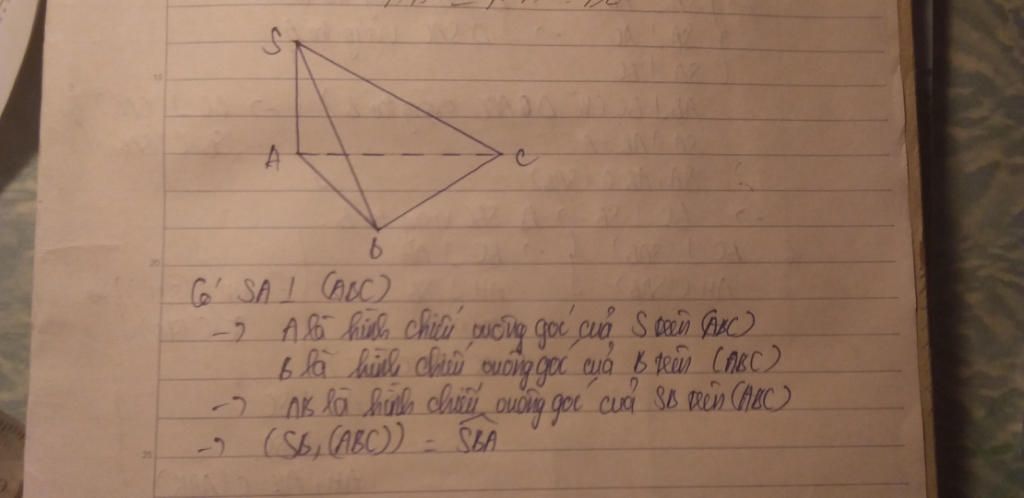 S
A
C
B
Có SA ⊥ (ABC)
→ A là hình chiếu vuông góc của S trên (ABC)
B là hình chiếu vuông góc của B trên (ABC)
→ AB là hình chiếu vuông góc của SB trên (ABC)
→ (SB, (ABC)) = SBA
20
25